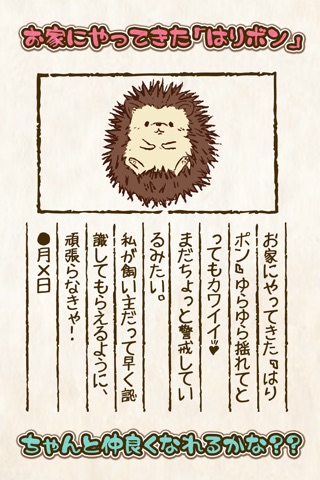 お家にやってきた『はりポン』
お家にやってきた『はり
ポン』ゆらゆら揺れてと
ってもカワイイ♥
まだちょっと警戒してい
るみたい。
私が飼い主だって早く認
識してもらえるように、
頑張らなきゃ！
●月×日
ちゃんと仲良くなれるかな？？